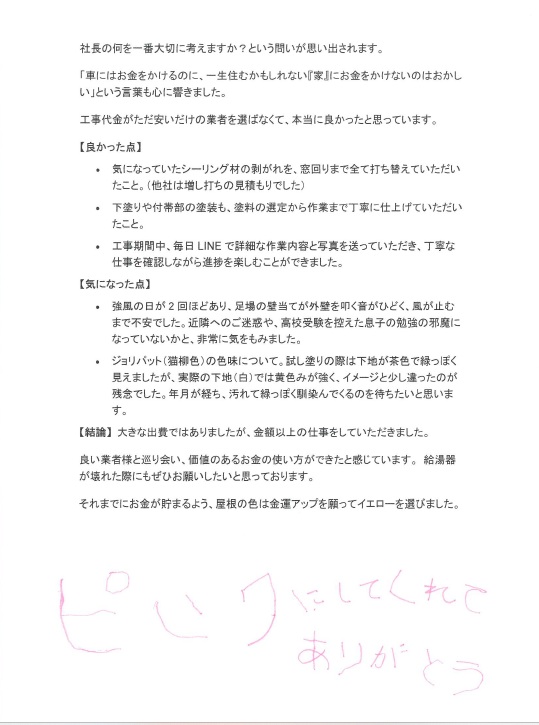 社長の何を一番大切に考えますか？という問いが思い出されます。
「車にはお金をかけるのに、一生住むかもしれない『家』にお金をかけないのはおかし
い」という言葉も心に響きました。
工事代金がただ安いだけの業者を選ばなくて、本当に良かったと思っています。
【良かった点】
• 気になっていたシーリング材の剥がれを、窓回りまで全て打ち替えていただい
たこと。（他社は増し打ちの見積もりでした）
• 下塗りや付帯部の塗装も、塗料の選定から作業まで丁寧に仕上げていただい
たこと。
• 工事期間中、毎日 LINE で詳細な作業内容と写真を送っていただき、丁寧な
仕事を確認しながら進捗を楽しむことができました。
【気になった点】
• 強風の日が 2 回ほどあり、足場の壁当てが外壁を叩く音がひどく、風が止む
まで不安でした。近隣へのご迷惑や、高校受験を控えた息子の勉強の邪魔に
なっていないかと、非常に気をもみました。
• ジョリパット（猫柳色）の色味について。試し塗りの際は下地が茶色で緑っぽく
見えましたが、実際の下地（白）では黄色みが強く、イメージと少し違ったのが
残念でした。年月が経ち、汚れて緑っぽく馴染んでくるのを待ちたいと思いま
す。
【結論】 大きな出費ではありましたが、金額以上の仕事をしていただきました。
良い業者様と巡り会い、価値のあるお金の使い方ができたと感じています。 給湯器
が壊れた際にもぜひお願いしたいと思っております。
それまでにお金が貯まるよう、屋根の色は金運アップを願ってイエローを選びました。
ピンクにしてくれて
ありがとう